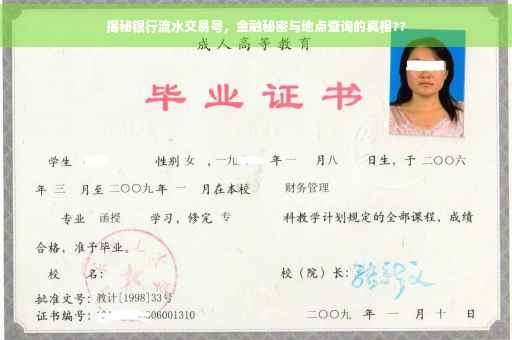 揭秘银行流水交易号，金融秘密与地点查询的真相??
成人高等教育
毕业证书
学生 性别 女 ，一九 年 一 月 八 日生，于 二〇〇六
年 三 月至 二〇〇九 年 一 月在本校 财务管理
专业 函授 学习，修完 专 科教学计划规定的全部课程，成绩
合格，准予毕业。
校 名： 校（院）长：
批准文号：教计[1998]33号
证书编号： 06001310 二〇〇九 年 一 月 十 日